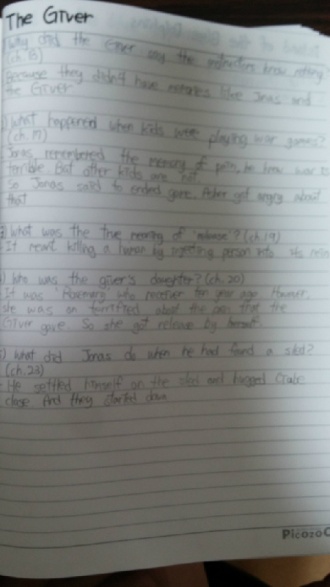 The Giver
Why did the Giver say the instructors know nothing?
(ch. 13)
Because they didn't have memories like Jonas and
the Giver
What happened when kids were playing war games?
(ch. 17)
Jonas remembered the memory of pain, he knew war is
terrible. But other kids are not
So Jonas said to ended game. Asher got angry about
that
What was the true meaning of "release"? (ch. 19)
It meant killing a human by injecting person into its
Who was the giver's daughter? (ch. 20)
It was Rosemary who receiver ten year ago. However,
she was terrified about the pain that the
Giver gave. So she got release by herself.
What did Jonas do when he had found a sled?
(ch. 23)
He settled himself on the sled and hugged Gabe
close. And they started down
Picozo